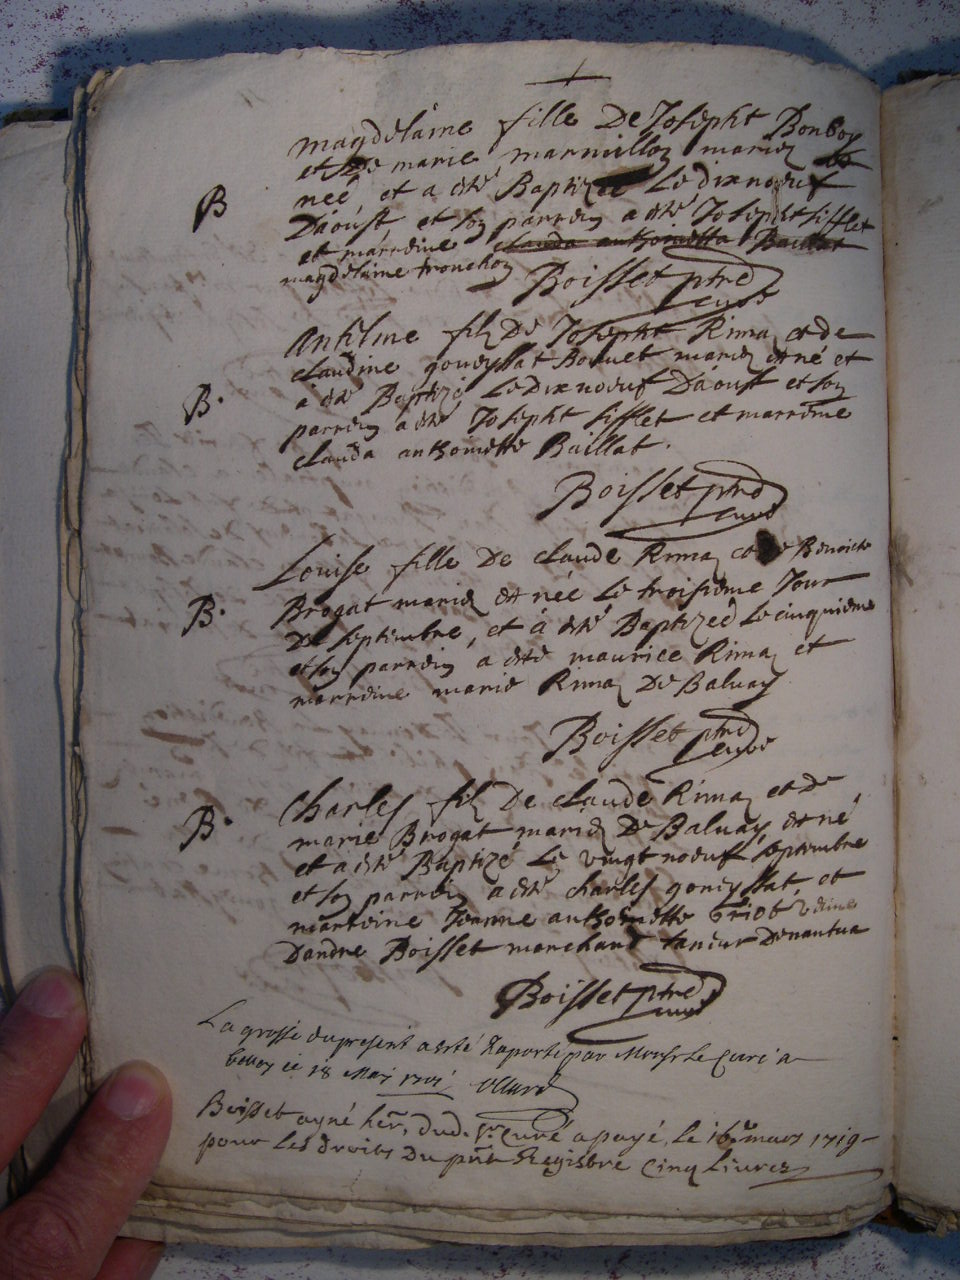 magdelaine fille De Josepht Bonboy
et De marie marmillon mariez et
neé, et a eté Baptizeé Le dixnoeuf
B
D'aoust, et son parrein a eté Josepht sifflet
et marreine clauda anthoinette Baillat
magdelaine tronchon
Boisset ptre
curé
Anthelme filz De Josepht Rinaz et de
claudine goueyssat Bouuet mariez est né et
B.
a eté Baptizé Le Dixnoeuf D'aoust et son
parrein a eté Josepht sifflet et marreine
clauda anthoinette Baillat.
Boisset ptre
curé
Louise fille De claude Rinaz et de Benoiste
Brogat mariez est neé Le troisieme Jour
B.
De septembre, et a eté Baptizeé Le cinquieme
et son parrein a eté maurice Rinaz et
marreine marie Rinaz De Baluay
Boisset ptre
curé
Charles filz De claude Rinaz et de
marie Brogat mariez De Baluay, est né
B.
et a eté Baptizé Le vingt noeuf septembre
et son parrein a eté charles goueyssat, et
marreine Jeanne anthoinette
D'andre Boisset marchand taneur De nantua
Boisset ptre
curé
La grosse du present a esté Raporté par Monsr Le Curé a
ce 18 May
Boisset ayné her. dud. sr curé a payé, le 16e mars 1719
pour Les droits Du pnt Registre Cinq Livres